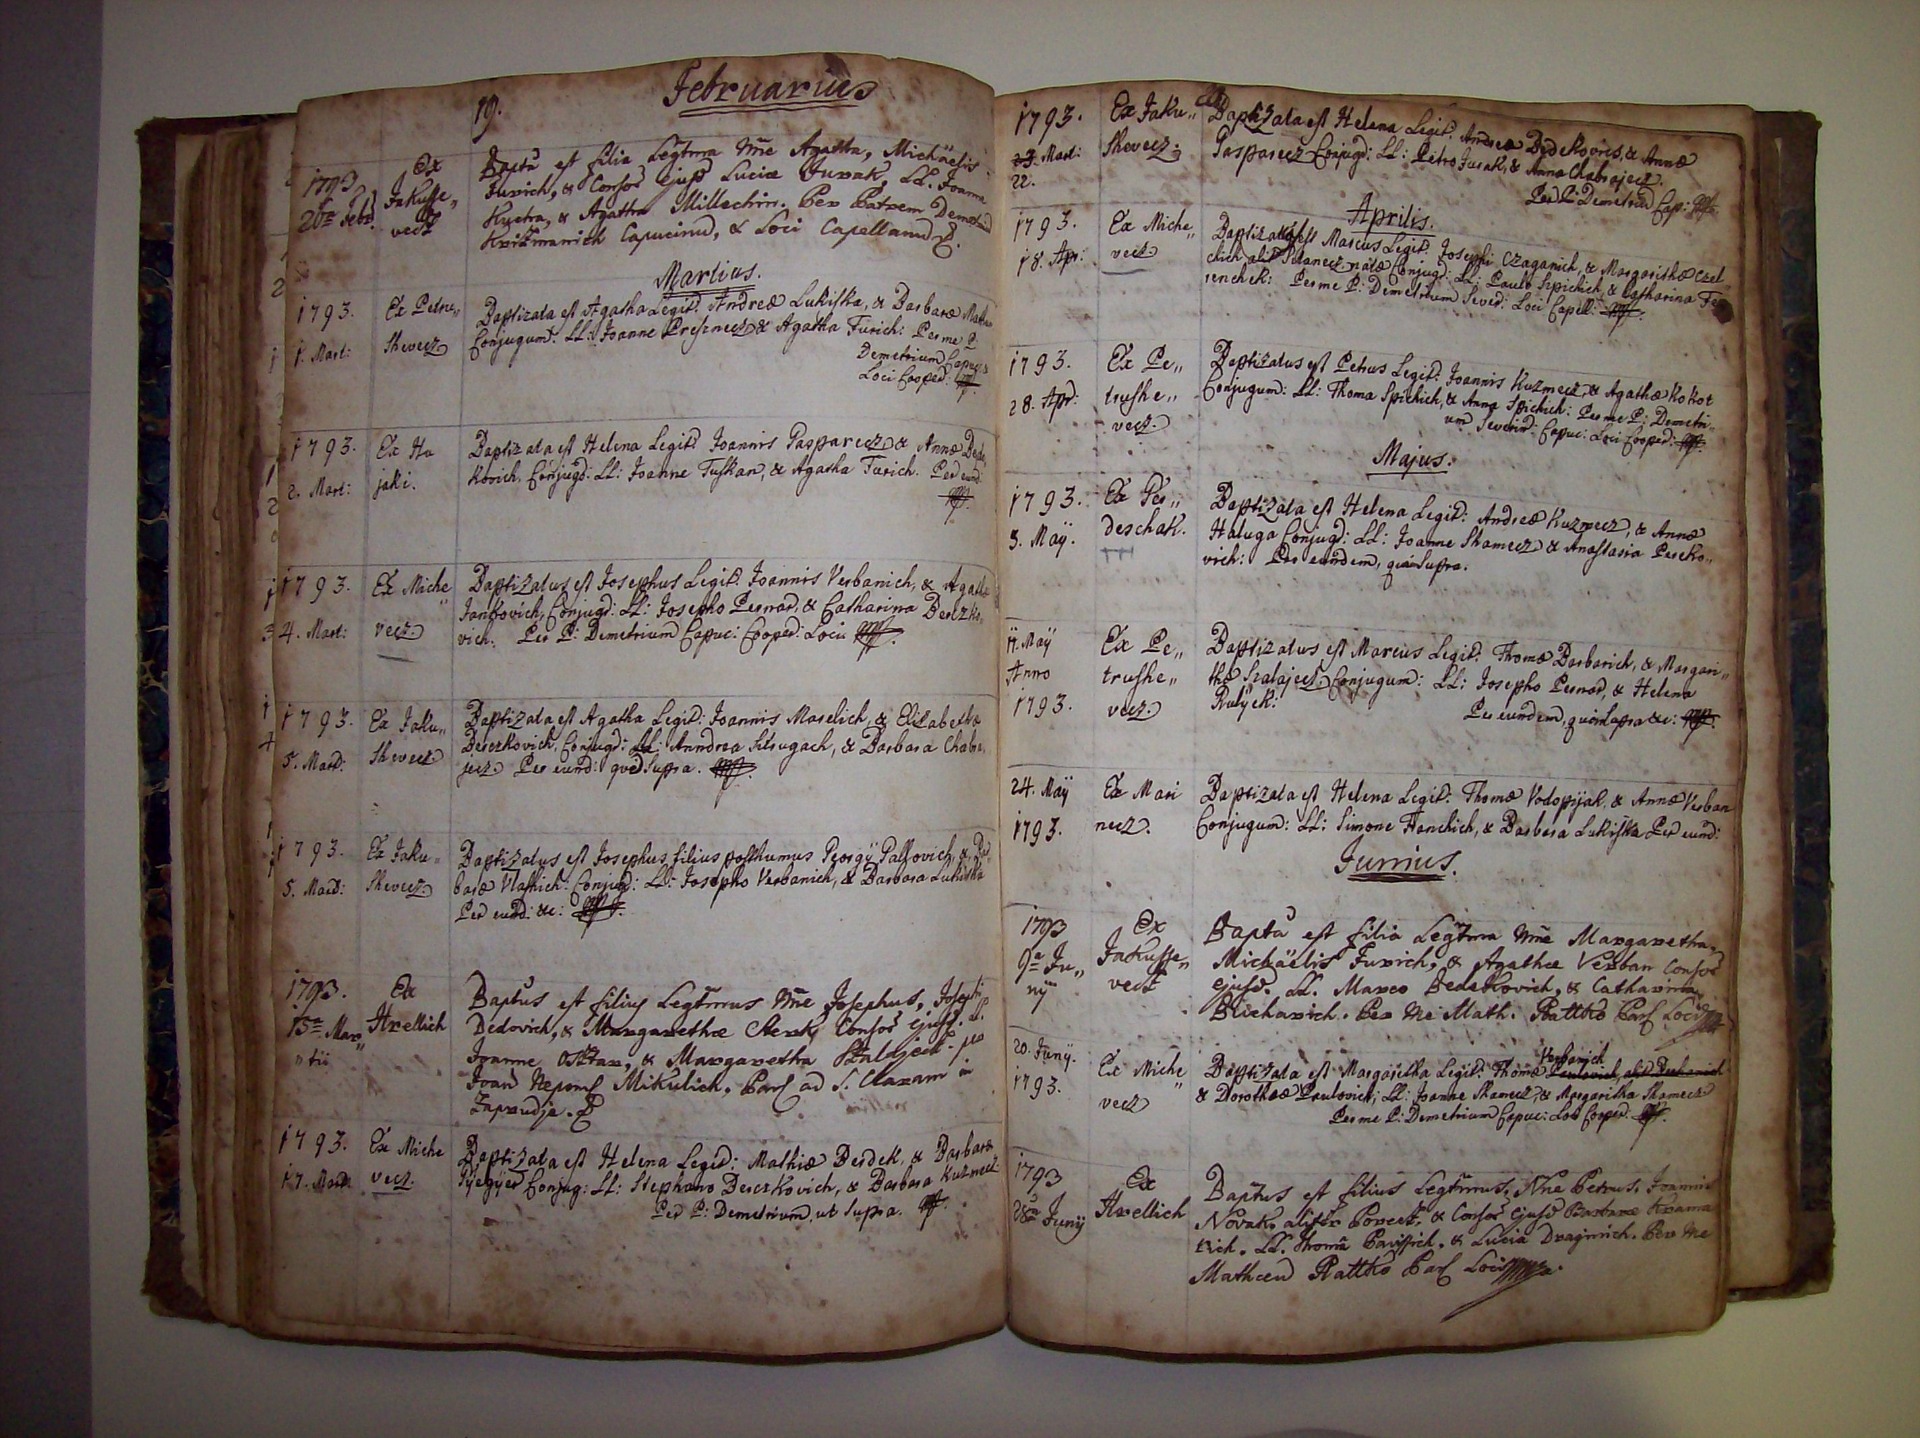 19.
Februarius
1793
20ma Febr.
Ex
Jakusse„
vecz
Bapta est filia Legtma Nne Agatha, Michaelis
Jurich, & Consos ejusd Luciæ Jurak, LL. Joanne
& Agatha Millechin. Per Patrem Demetrium
Krizmanich Capucinu, & Loci Capellanu
Martius.
1793.
1. Mart:
Ex Petru„
shevecz
Baptizata est Agatha Legit: Andreæ Lukishka, & Barbaræ
Conjugum: LL: Joanne & Agatha Jurich: Per me P:
Demetrium Capuc:
Loci Cooper:
1793.
2. Mart:
Ex Hu
jaki.
Baptizata est Helena Legit: Joannis Gasparecz & Annæ Dede
kovich, Conjugd: LL: Joanne Tuskan, & Agatha Turich. Per eund:
1793.
4. Mart:
Ex Miche
vecz
Baptizatus est Josephus Legit: Joannis Verbanich, & Agathæ
Jankovich, Conjugd: LL: Josepho Pernar, & Catharina Derczko„
vich. Per P: Demetrium Capuc: Cooper: Loci
1793.
5. Mart:
Ex Jaku„
shevecz
Baptizata est Agatha Legit: Joannis Maselich, & Elizabethæ
Derczkovich, Conjugd: LL: Anndrea & Barbara Chabra
jecz Per eund: qvo Supra.
1793.
5. Mart:
Ex Jaku„
shevecz
Baptizatus est Josephus filius posthumus Georgij Palkovich, & Bar
baræ Conjugd: LL: Josepho Verbanich, & Barbara Lukishka
Per eund: &c:
1793.
15a Mar„
tii
Ex
Hrellich
Baptus est filius Legtmus Nne Josephus, Josephi
Dedovich, & Margarethæ Consos ejusd. LL.
Joanne & Margaretha per
Joan Nepom Mikulich, Par ad S. Claram in
Zaprudja.
1793.
17. Mart:
Ex Miche
vecz.
Baptizata est Helena Legit: Mathiæ Berdek, & Barbaræ
Conjug: LL: Stephano Derczkovich, & Barbara Kuzmecz
Per P: Demetrium, ut Supra.
1793.
Mart:
22.
Ex Jaku„
shevecz.
Baptizata est Helena Legit: Andreæ Dedekovics, & Annæ
Gasparecz Conjugd: LL: Petro Jurak, & Anna Chabrajecz.
Per P: Demetrium Cap:
Aprilis.
1793.
18. Apr:
Ex Miche„
vecz.
Baptizatus est Marcus Legit: Josephi Czaganich, & Margarithæ
natæ Conjugd: LL: Paulo Szpichich, & Catharina Fe
renchek: Per me P: Demetrium Sever: Loci Capell:
1793.
28. Apr:
Ex Pe„
trushe„
vecz.
Baptizatus est Petrus Legit: Joannis Kuzmecz, & Agathæ Kokot
Conjugum: LL: Thoma Spichich, & Anna Spichich: Per me P: Demetri„
um Severin: Capuc: Loci Cooper:
Majus.
1793.
3. Maÿ.
Ex
deschak.
Baptizata est Helena Legit: Andreæ Kuzmecz, & Annæ
Haluga Conjugd: LL: Joanne Shamecz & Anastasia Percko„
vich: Per eundem, qui Supra.
Maÿ
Anno
1793.
Ex Pe„
trushe„
vecz.
Baptizatus est Marcus Legit: Thomæ Barbarich, & Margari„
thæ Conjugum: LL: Josepho Pernar, & Helena
Per eundem, qui Supra &c:
24. Maÿ
1793.
Ex Mari
necz.
Baptizata est Helena Legit: Thomæ Vodopijak, & Annæ Verban
Conjugum: LL: Simone Hanchich, & Barbara Lukishka Per eund:
Junius.
1793
9a Ju„
nÿ
Ex
Jakusse„
vecz
Bapta est filia Legtma Nne Margaretha,
Michaëlis Jurich, & Agathæ Verban Consos
ejusd. LL. Marco Dedekovich, & Catharina
Bricharich. Per me Math. Rattko Par Loci
20. Junÿ.
1793.
Ex Miche
vecz
Verbanich
Baptizata est Margaritha Legit: Thomæ
& Dorotheæ Paulovich, LL: Joanne Shamecz, & Margaritha Shamecz
Per me P: Demetrium Capuc: Loci Cooper:
1793
28a Junÿ
Ex
Hrellich
Baptus est filius Legtmus, Nne Petrus, Joannis
Novak, aliter Porecz, & Consos ejusd Barbaræ
LL. Thoma & Lucia Per me
Matheu Rattko Par Loci